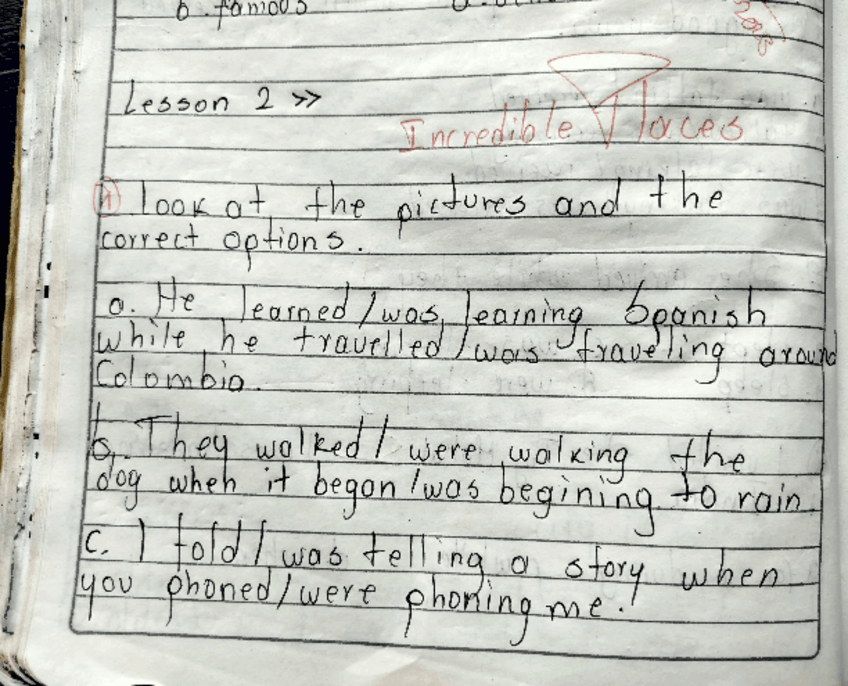 b. famous
Lesson 2 >>
Incredible Places
A Look at the pictures and the
correct options.
a. He learned / was learning Spanish
while he travelled / was traveling around
Colombia.
b. They walked / were walking the
dog when it began / was begining to rain.
c. I told / was telling a story when
you phoned / were phoning me.